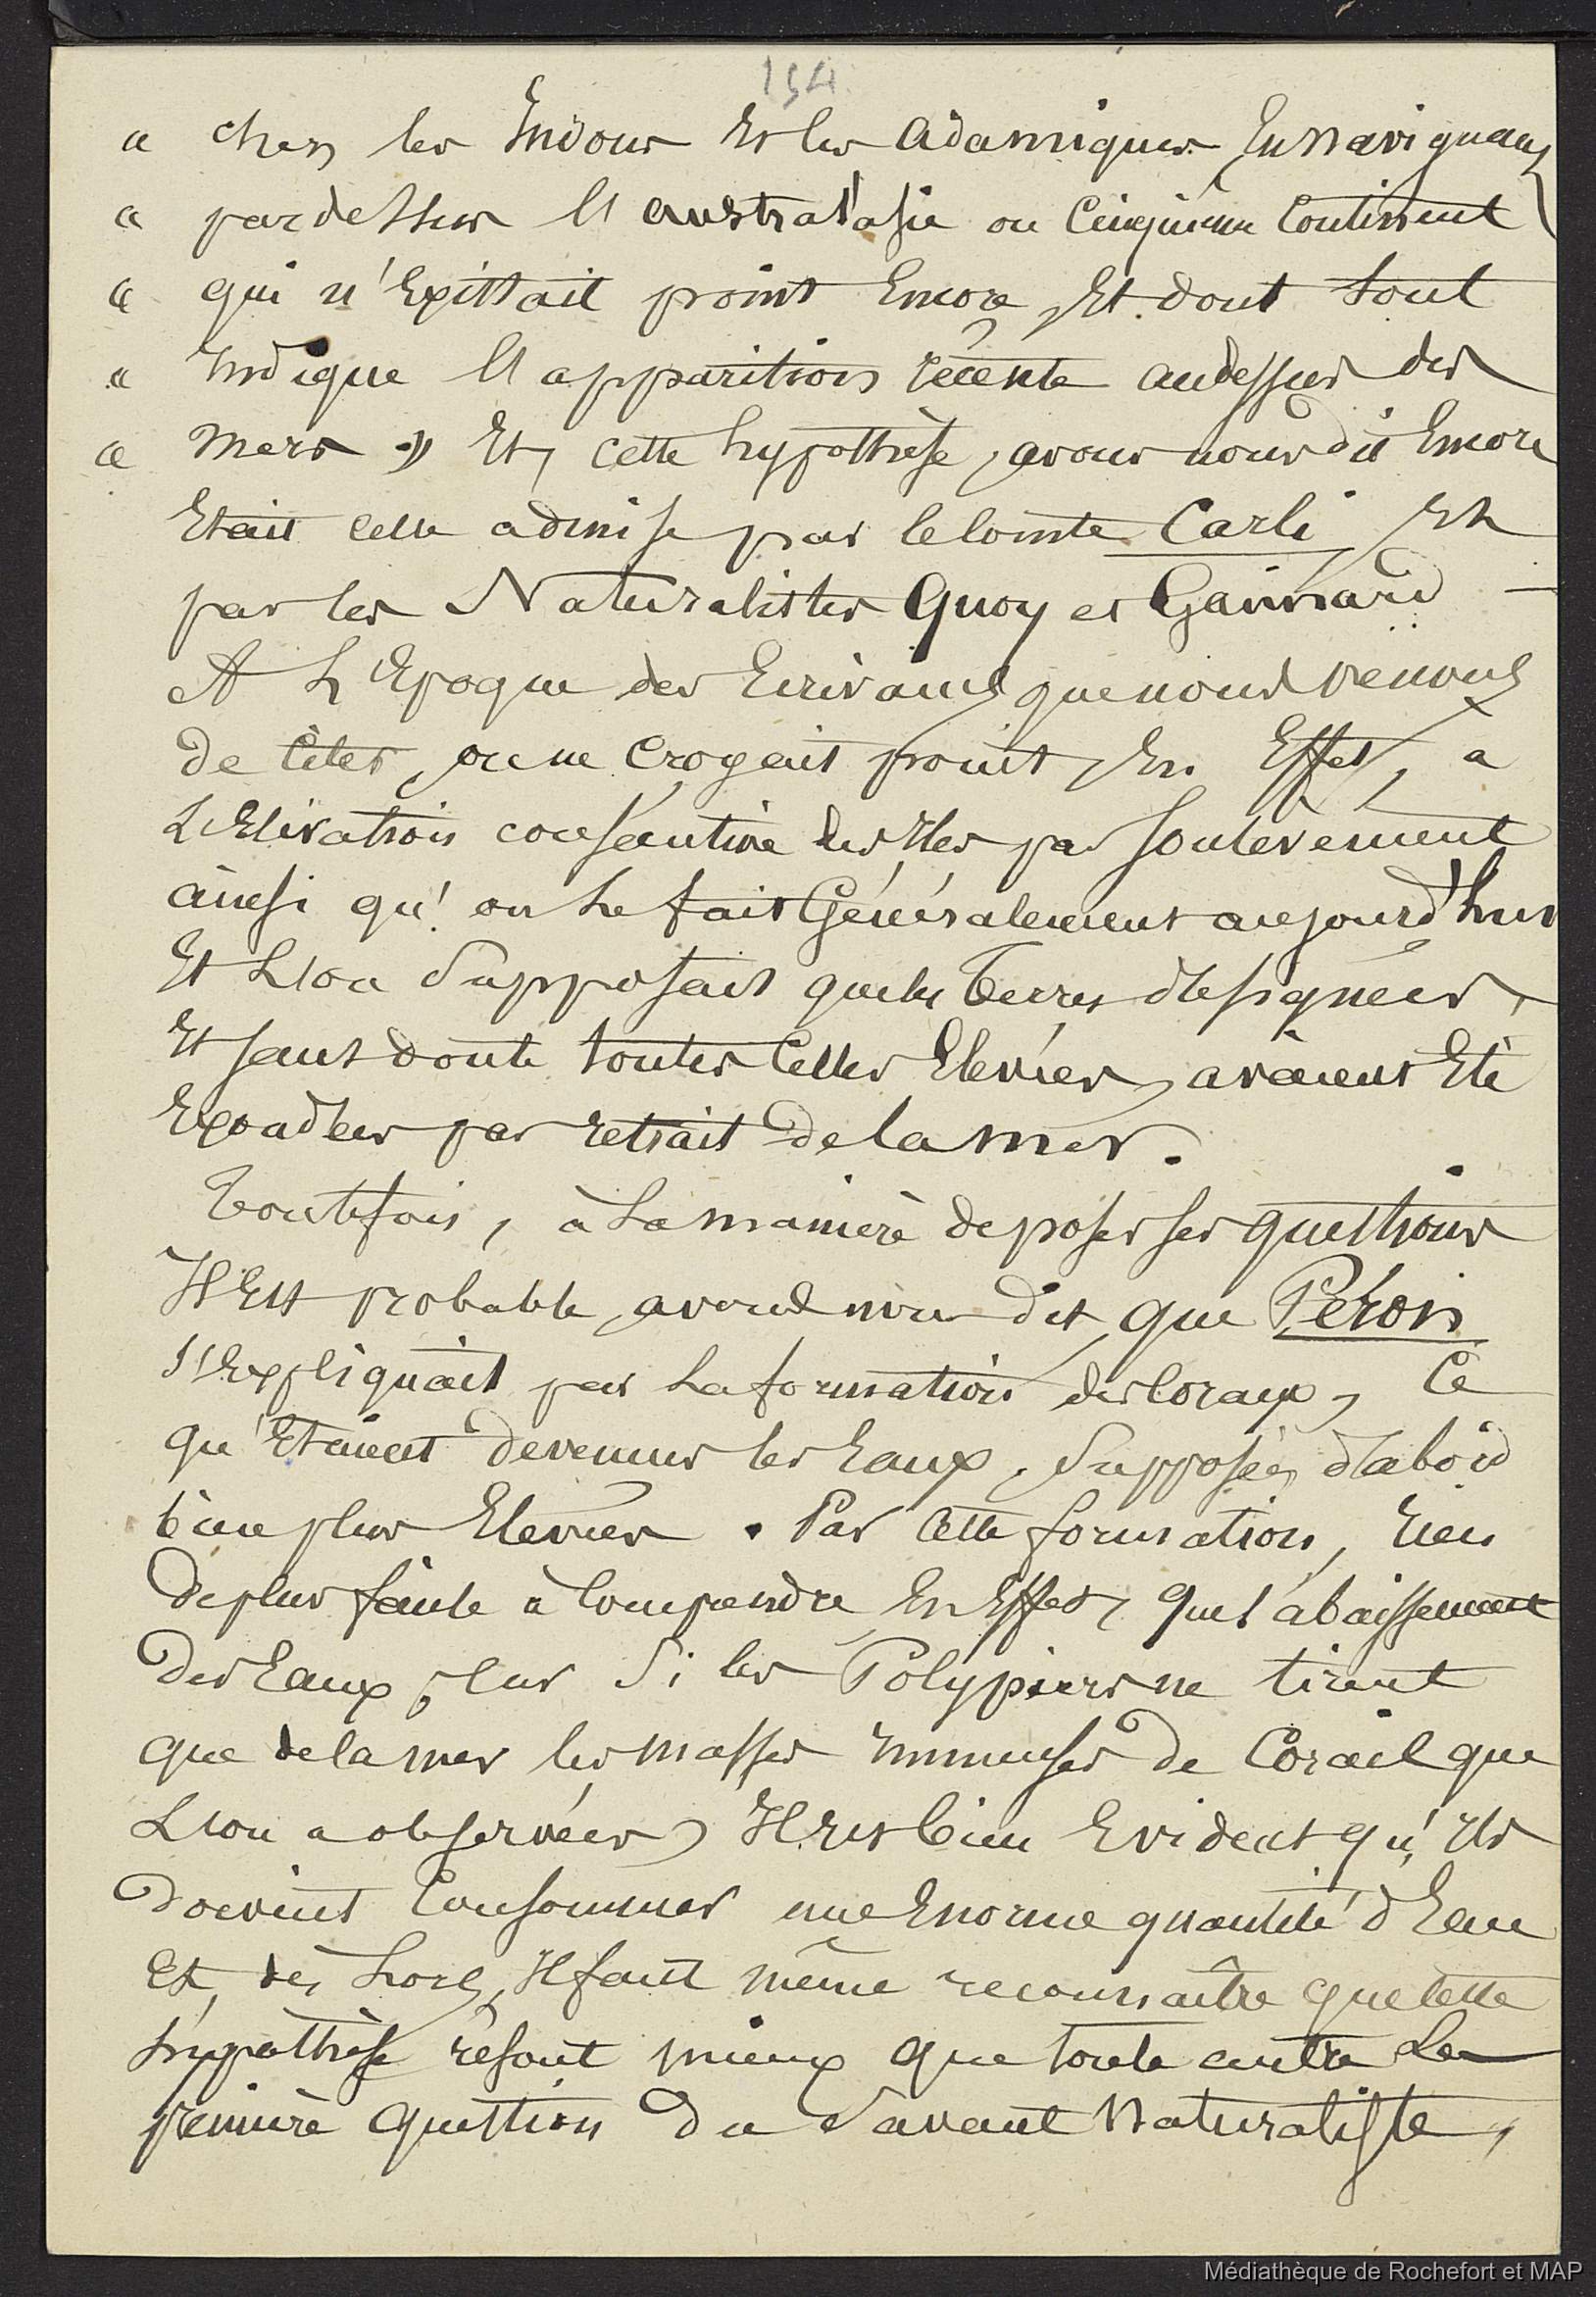 154
« chez les Indous Et les Adamiques En navigeant
« par dessus l'australasie ou Cinquième Continent
« qui n'Existait point Encore, Et dont tout
« Indique l'apparition récente au dessus des
« mers » Et, cette hypothèse, avons nous dit Encore
Etait celle admise par le Comte Carli Et
par les Naturalistes Quoy et Gaimard —
A L'Epoque des Ecrivains que nous venons
de Citer, on ne Croyait point, En Effet, a
L'Elévation consécutive des Iles par Soulèvement
ainsi qu'on Le fait Généralement aujourd'hui
Et L'on Supposait que les Terres désignées,
Et sans doute toutes Celles Elevées, avaient Eté
Exondées par retrait de la mer.
Toutefois, à La manière de poser ses questions
Il Est probable, avons nous dit, que Péron
S'Expliquait par La formation des Coraux, Ce
qu'Etaient devenues les Eaux, Supposées d'abord
bien plus Elevées. Par Cette formation, rien
de plus facile à Comprendre En Effet, que l'abaissement
des Eaux, Car Si les Polypiers ne tirent
que de la mer les masses Immenses de Corail que
L'on a observées, Il est bien Evident qu'Ils
doivent Consommer une Enorme quantité d'Eau
Et, dès Lors, Il faut même reconnaître que Cette
hypothèse résout mieux que toute autre La
première question du Savant Naturaliste,
Médiathèque de Rochefort et MAP